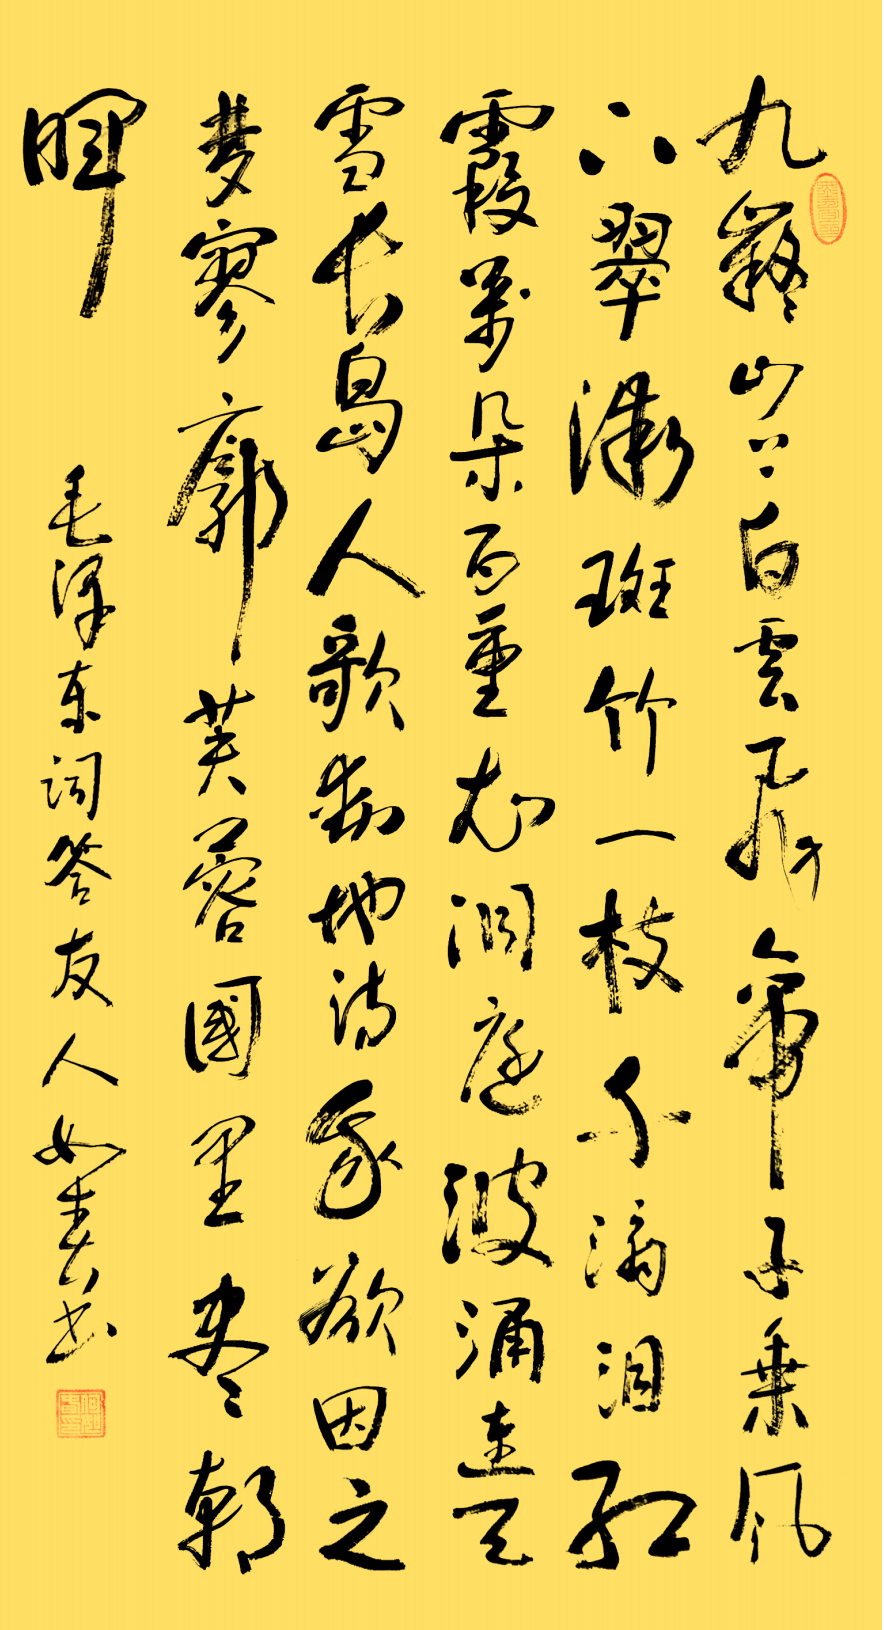 九嶷山上白雲飛帝子乘风
下翠微斑竹一枝千滴泪红
霞萬朵百重衣洞庭波涌连天
雪长島人歌動地诗我欲因之
夢寥廓芙蓉國里尽朝
暉
毛泽东词答友人如书